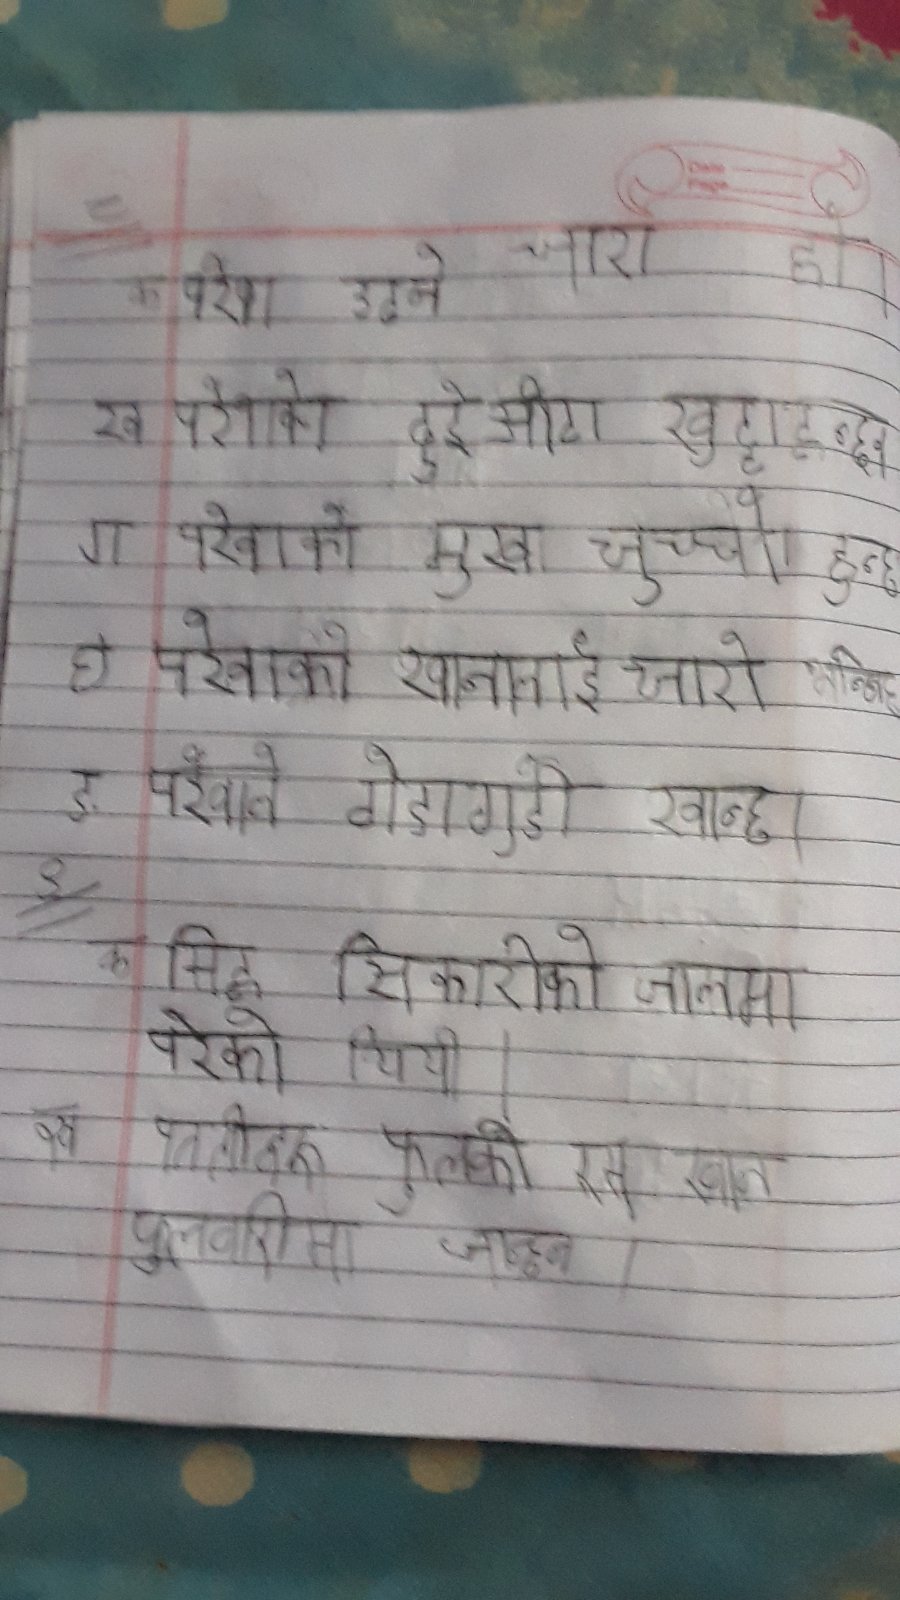 Date
Page
क परेवा उड्ने चारा हो ।
ख परेवाको दुई ओटा खुट्टा हुन्छन
ग परेवाको मुख चुच्चो हुन्छ
घ परेवाको खानालाई चारो भनिन्छ
ङ. परेवाले गेडागुडी खान्छ।
२
क सिंह सिकारीको जालमा
परेको थियो |
ख पुतलीहरू फुलको रस खान
फुलबारीमा जान्छन |